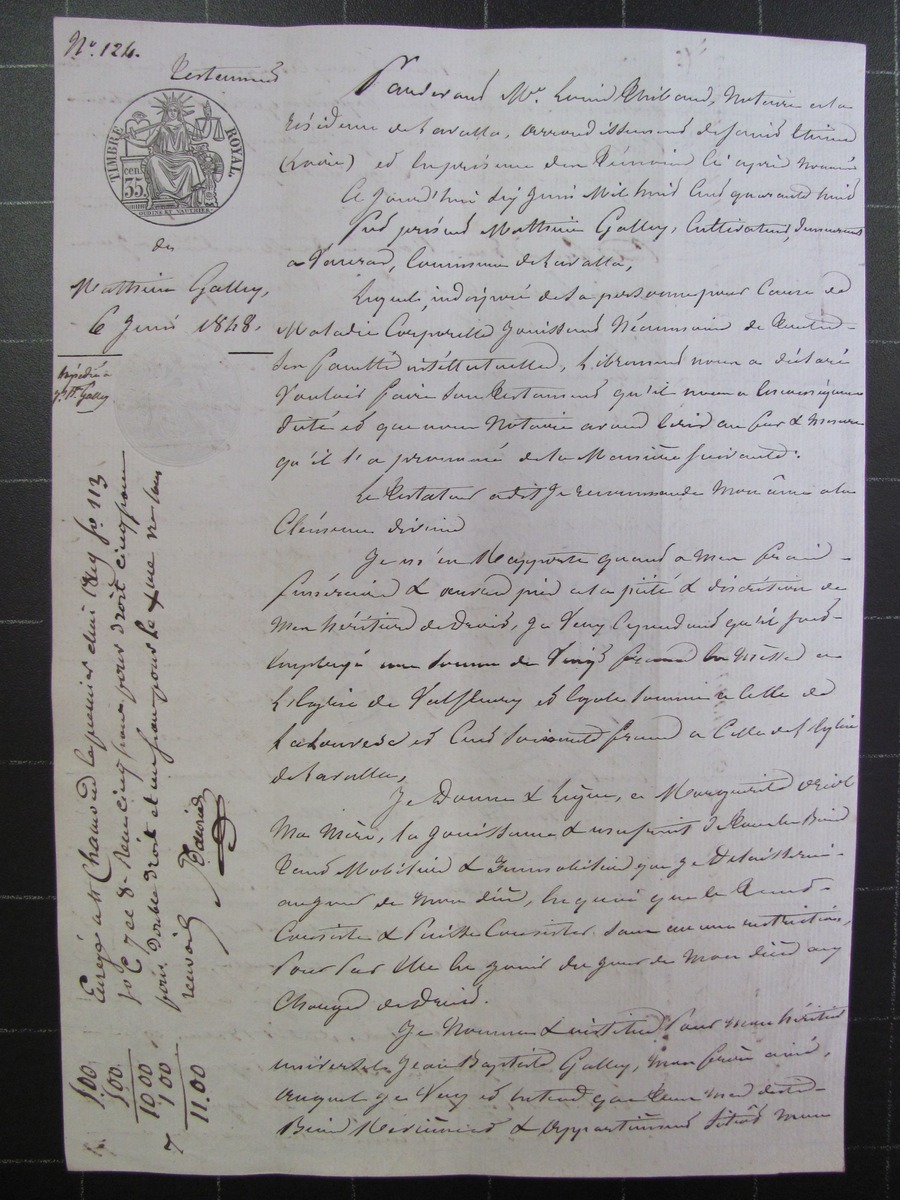 N° 124.
Testament
TIMBRE ROYAL.
cen.
35
de
Mathieu Galley,
6 Juin 1848.
Expédié à
J. Bte Galley
Pardevant Me Louis Thibaud, Notaire à la
résidence de Lavalla, arrondissement de Saint Etienne
(Loire) et en présence des témoins ci après nommés
Ce jourd'hui six Juin Mil huit cent quarante huit
fut présent Mathieu Galley, Cultivateur, demeurant
a commune de Lavalla,
Lequel indisposé de sa personne pour cause de
Maladie Corporelle jouissant Néanmoins de toutes
ses facultés intellectuelles, librement nous a déclaré
Vouloir faire son testament qu'il nous a
dicté et que nous Notaire avons écrit au fur & mesure
qu'il l'a prononcé de la Manière suivante.
Le Testateur a dit je recommande Mon âme a la
Clémence divine
Je m'en Rapporte quand a Mes frais
funéraires & a la piété & discrétion de
Mon héritier de Droit, je Veux Cependant qu'il soit
employé une somme de Vingt francs en Messes a
L'Eglise de Valfleury et égale somme a Celle de
Lalouvesc et Cent soixante francs a Celle de l'Eglise
de Lavalla,
Je Donne & Lègue, a Marguerite
Ma Mère, la jouissance & usufruit de tous les Biens
tant Mobiliers & Immobiliers que je Délaisserai
au jour de Mon décès, en quoi que le tout
Consiste & Puisse Consister sans aucune restriction,
Pour par Elle en jouir du jour de Mon décès aux
Charges de Droit.
Je Nomme & institue Pour mon héritier
universel Jean Baptiste Galley, mon frère ainé,
auquel je Veux et entend que tous mes dits
Biens & appartiennent sitôt mon
Enregé à St Chamond le premier août 1849 fo 113
Vo C 7 et 8. Reçu cinq francs pour droit cinq francs
pour double droit et un franc pour le Xme ne sous
renvoi
5.00
5.00
10.00
1.00
11.00